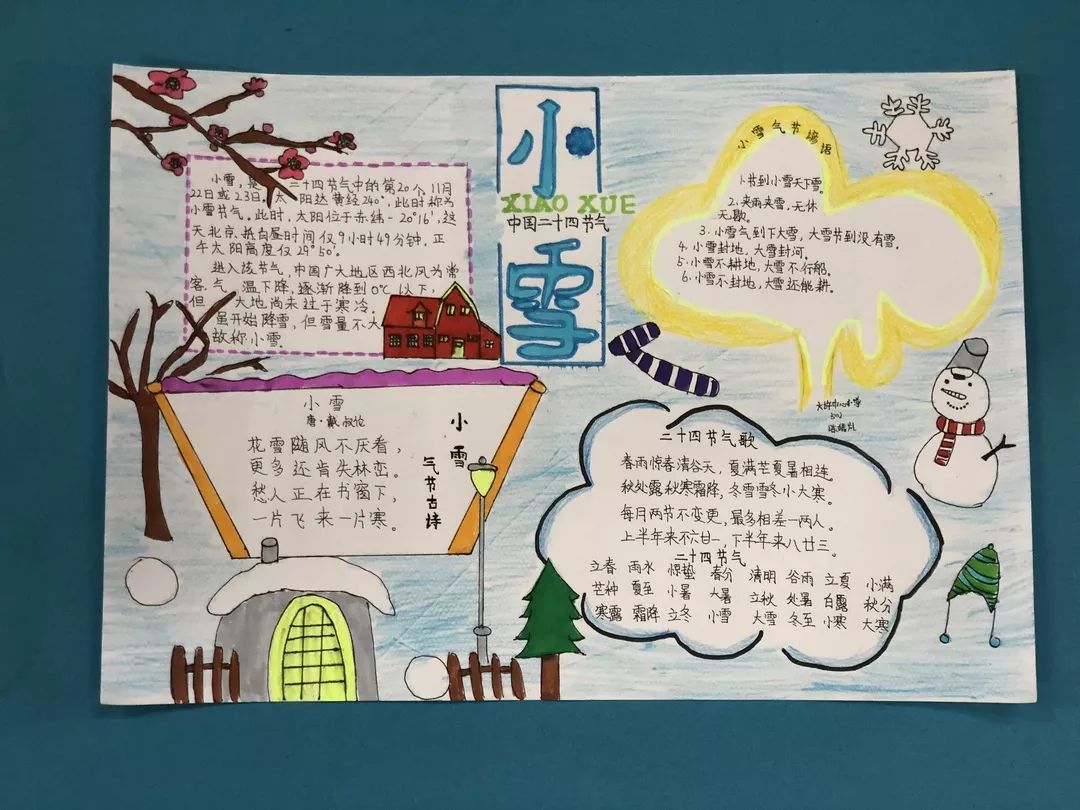 小雪
XIAO XUE
中国二十四节气
小雪，是二十四节气中的第20个，11月
22日或23日，太阳达黄经240°，此时称为
小雪节气。此时，太阳位于赤纬-20°16′，这
天北京
白昼时间仅9小时49分钟，正
午太阳高度仅29°50′。
进入该节气，中国广大地区西北风为常
客，气温下降，逐渐降到0℃以下，
但大地尚未过于寒冷，
虽开始降雪，但雪量不大
故称小雪。
小雪气节谚语
1.节到小雪天下雪。
2.夹雨夹雪，无休
无歇。
3.小雪气到下大雪，大雪节到没有雪。
4.小雪封地，大雪封河。
5.小雪不耕地，大雪不行船。
6.小雪不封地，大雪还能耕。
小雪
唐·戴叔伦
花雪随风不厌看，
更多还肯失林峦。
愁人正在书窗下，
一片飞来一片寒。
小雪
气节古诗
中心小学
二十四节气歌
春雨惊春清谷天，夏满芒夏暑相连
秋处露秋寒霜降，冬雪雪冬小大寒。
每月两节不变更，最多相差一两人。
上半年来不六廿一，下半年来八廿三。
二十四节气
立春 雨水 惊蛰 春分 清明 谷雨 立夏 小满
芒种 夏至 小暑 大暑 立秋 处暑 白露 秋分
寒露 霜降 立冬 小雪 大雪 冬至 小寒 大寒